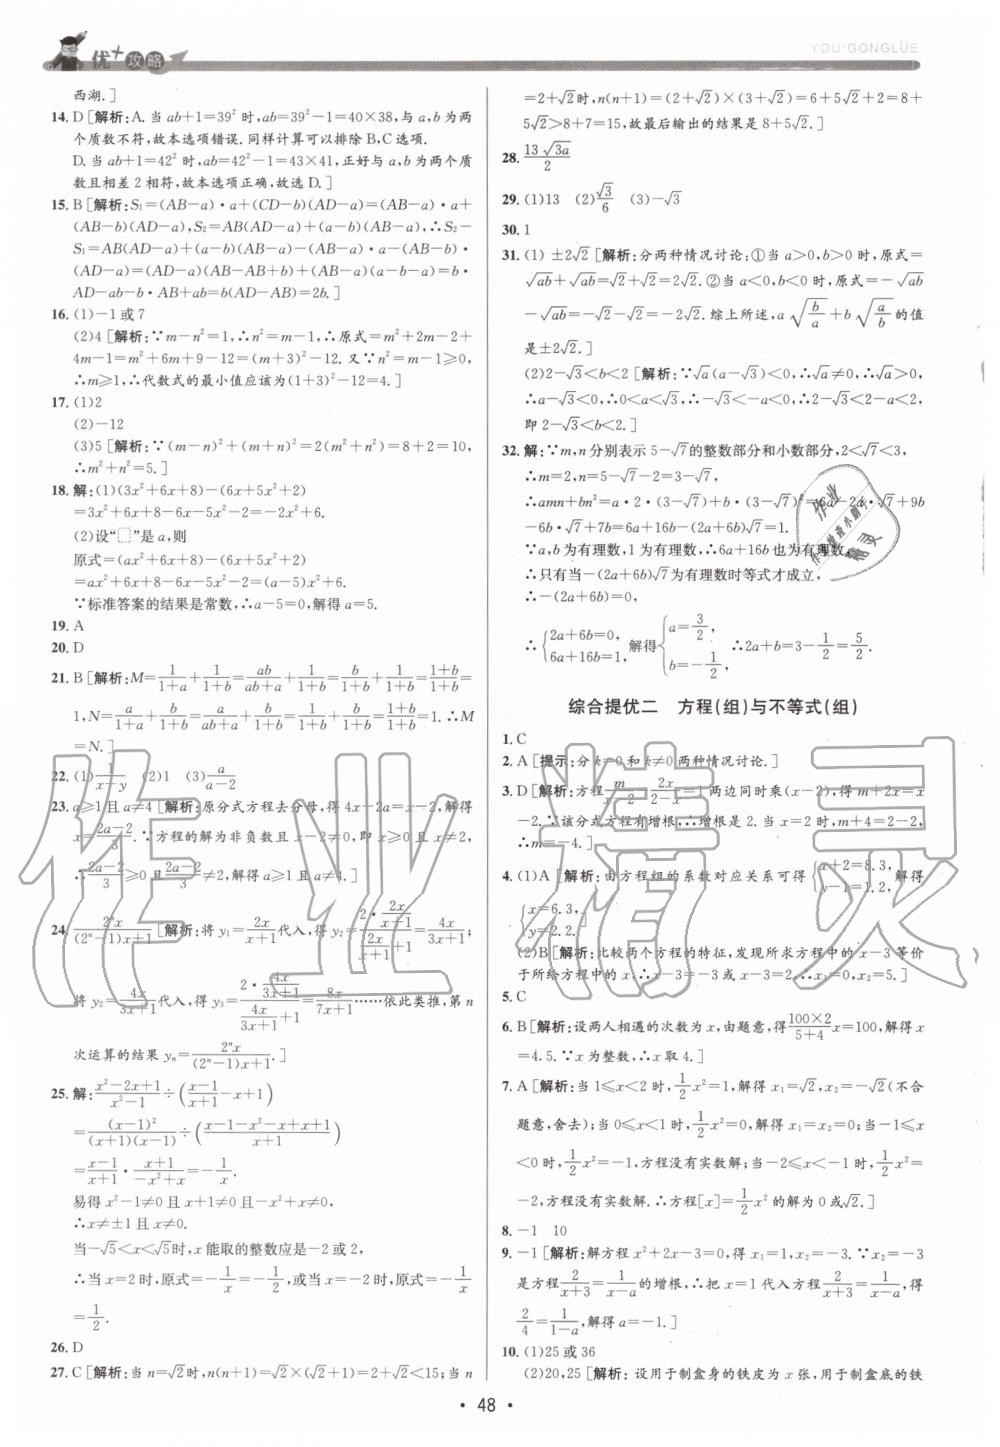 优+攻略
YOU+GONGLÜE
西湖.]
14. D [解析:A. 当 ab+1=39² 时,ab=39²-1=40×38,与 a,b 为两
个质数不符,故本选项错误. 同样计算可以排除 B,C 选项.
D. 当 ab+1=42² 时,ab=42²-1=43×41,正好与 a,b 为两个质
数且相差 2 相符,故本选项正确,故选 D.]
15. B [解析:S₁=(AB-a)·a+(CD-b)(AD-a)=(AB-a)·a+
(AB-b)(AD-a),S₂=AB(AD-a)+(a-b)(AB-a),∴S₂-
S₁=AB(AD-a)+(a-b)(AB-a)-(AB-a)·a-(AB-b)·
(AD-a)=(AD-a)(AB-AB+b)+(AB-a)(a-b-a)=b·
AD-ab-b·AB+ab=b(AD-AB)=2b.]
16. (1)-1 或 7
(2)4 [解析:∵m-n²=1,∴n²=m-1,∴原式=m²+2m-2+
4m-1=m²+6m+9-12=(m+3)²-12. 又∵n²=m-1≥0,
∴m≥1,∴代数式的最小值应该为(1+3)²-12=4.]
17. (1)2
(2)-12
(3)5 [解析:∵(m-n)²+(m+n)²=2(m²+n²)=8+2=10,
∴m²+n²=5.]
18. 解:(1)(3x²+6x+8)-(6x+5x²+2)
=3x²+6x+8-6x-5x²-2=-2x²+6.
(2)设“□”是 a,则
原式=(ax²+6x+8)-(6x+5x²+2)
=ax²+6x+8-6x-5x²-2=(a-5)x²+6.
∵标准答案的结果是常数,∴a-5=0,解得 a=5.
19. A
20. D
21. B [解析:M=1/(1+a)+1/(1+b)=ab/(ab+a)+1/(1+b)=b/(1+b)+1/(1+b)=(1+b)/(1+b)=
1,N=a/(1+a)+b/(1+b)=a/(ab+a)+b/(1+b)=1/(1+b)+b/(1+b)=(1+b)/(1+b)=1. ∴M
=N.]
22. (1)1/(x+y) (2)1 (3)a/(a-2)
23. a≥1 且 a≠4 [解析:原分式方程去分母,得 4x-2a=x-2,解得
x=(2a-2)/3. ∵方程的解为非负数且 x-2≠0,即 x≥0 且 x≠2,
∴(2a-2)/3≥0 且 (2a-2)/3≠2,解得 a≥1 且 a≠4.]
24. 2ⁿx/((2ⁿ-1)x+1) [解析:将 y₁=2x/(x+1)代入,得 y₂=(2·2x/(x+1))/(2x/(x+1)+1)=4x/(3x+1);
将 y₂=4x/(3x+1)代入,得 y₃=(2·4x/(3x+1))/(4x/(3x+1)+1)=8x/(7x+1)……依此类推,第 n
次运算的结果 yₙ=2ⁿx/((2ⁿ-1)x+1).]
25. 解:(x²-2x+1)/(x²-1)÷((x-1)/(x+1)-x+1)
=(x-1)²/((x+1)(x-1))÷((x-1-x²-x+x+1)/(x+1))
=(x-1)/(x+1)·(x+1)/(-x²+x)=-1/x.
易得 x²-1≠0 且 x+1≠0 且-x²+x≠0,
∴x≠±1 且 x≠0.
当-√5<x<√5时,x 能取的整数应是-2 或 2,
∴当 x=2 时,原式=-1/x=-1/2,或当 x=-2 时,原式=-1/x
=1/2.
26. D
27. C [解析:当 n=√2时,n(n+1)=√2×(√2+1)=2+√2<15;当 n
=2+√2时,n(n+1)=(2+√2)×(3+√2)=6+5√2+2=8+
5√2>8+7=15,故最后输出的结果是 8+5√2.]
28. 13√3a/2
29. (1)13 (2)√3/6 (3)-√3
30. 1
31. (1) ±2√2 [解析:分两种情况讨论:①当 a>0,b>0 时,原式=
√ab+√ab=√2+√2=2√2. ②当 a<0,b<0 时,原式=-√ab
-√ab=-√2-√2=-2√2. 综上所述,a√(b/a)+b√(a/b)的值
是±2√2.]
(2)2-√3<b<2 [解析:∵√a(a-√3)<0,∴√a≠0,∴√a>0,
∴a-√3<0,∴0<a<√3,∴-√3<-a<0,∴2-√3<2-a<2,
即 2-√3<b<2.]
32. 解:∵m,n 分别表示 5-√7的整数部分和小数部分,2<√7<3,
∴m=2,n=5-√7-2=3-√7,
∴amn+bn²=a·2·(3-√7)+b·(3-√7)²=6a-2a·√7+9b
-6b·√7+7b=6a+16b-(2a+6b)√7=1.
∵a,b 为有理数,1 为有理数,∴6a+16b 也为有理数,
∴只有当-(2a+6b)√7为有理数时等式才成立,
∴-(2a+6b)=0,
∴{2a+6b=0, 6a+16b=1, 解得{a=3/2, b=-1/2, ∴2a+b=3-1/2=5/2.
综合提优二 方程(组)与不等式(组)
1. C
2. A [提示:分 k=0 和 k≠0 两种情况讨论.]
3. D [解析:方程m/(x-2)-2x/(2-x)=1 两边同时乘(x-2),得 m+2x=x
-2. ∵该分式方程有增根,∴增根是 2. 当 x=2 时,m+4=2-2,
∴m=-4.]
4. (1)A [解析:由方程组的系数对应关系可得{x+2=8.3, y-1=1.2, 解得
{x=6.3, y=2.2.]
(2)B [解析:比较两个方程的特征,发现所求方程中的 x-3 等价
于所给方程中的 x,∴x-3=-3 或 x-3=2,∴x₁=0,x₂=5.]
5. C
6. B [解析:设两人相遇的次数为 x,由题意,得(100×2)/(5+4)x=100,解得 x
=4.5. ∵x 为整数,∴x 取 4.]
7. A [解析:当 1≤x<2 时,1/2x²=1,解得 x₁=√2,x₂=-√2(不合
题意,舍去);当 0≤x<1 时,1/2x²=0,解得 x₁=x₂=0;当-1≤x
<0 时,1/2x²=-1,方程没有实数解;当-2≤x<-1 时,1/2x²=
-2,方程没有实数解. ∴方程[x]=1/2x² 的解为 0 或√2.]
8. -1 10
9. -1 [解析:解方程 x²+2x-3=0,得 x₁=1,x₂=-3. ∵x₂=-3
是方程2/(x+3)=1/(x-a)的增根,∴把 x=1 代入方程2/(x+3)=1/(x-a),得
2/4=1/(1-a),解得 a=-1.]
10. (1)25 或 36
(2)20,25 [解析:设用于制盒身的铁皮为 x 张,用于制盒底的铁
·48·
作业精灵